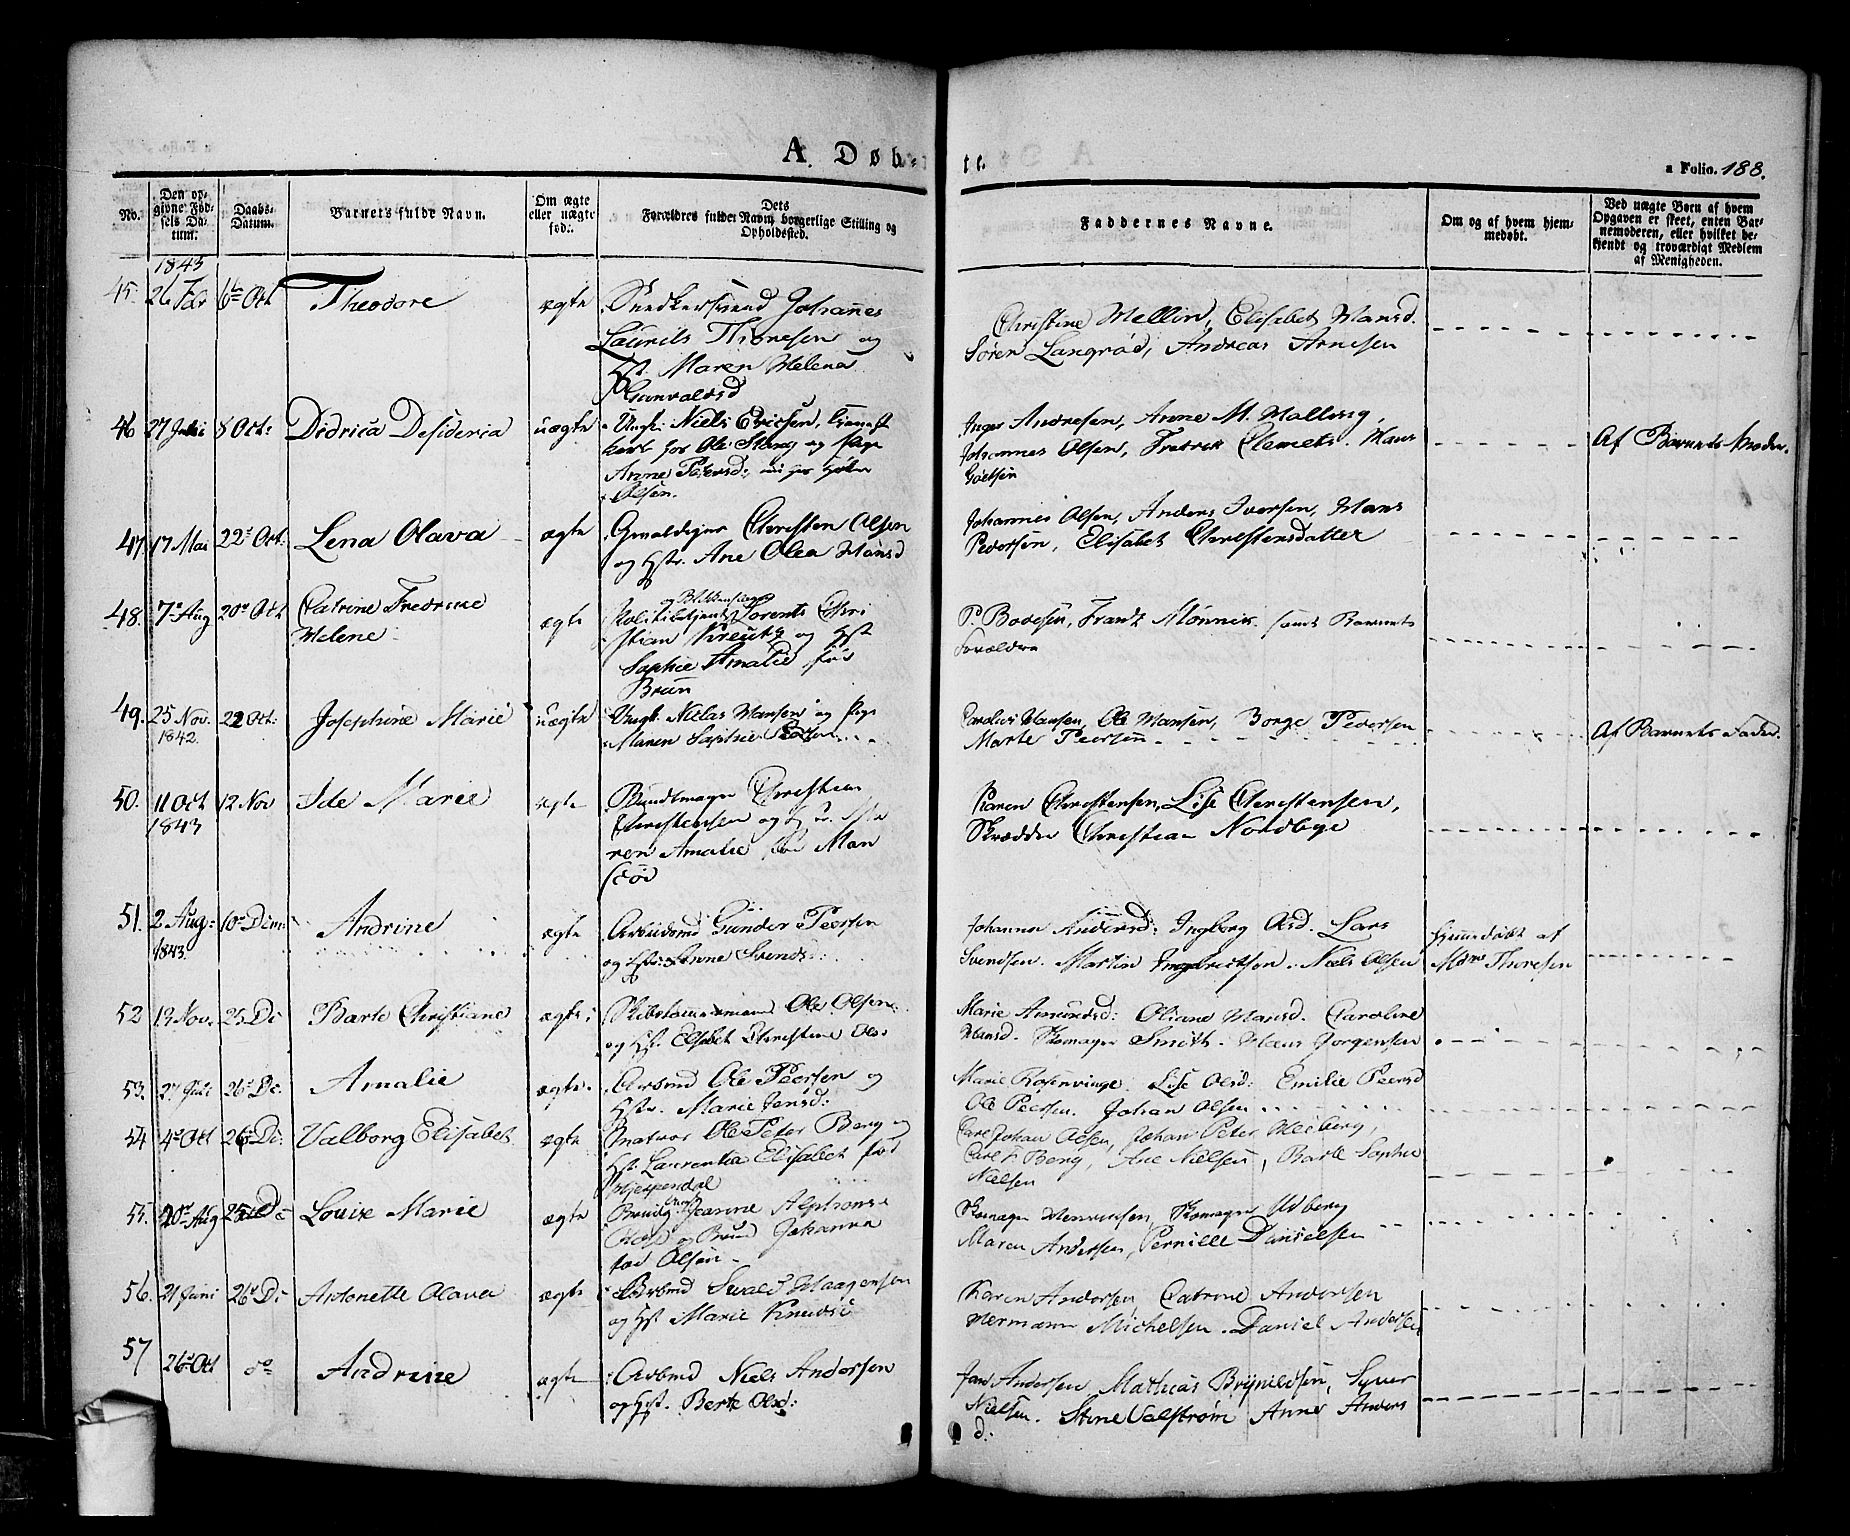 A. Døb-
te.
a Folio. 188.
No.
Den op-
givne Fød-
sels Da-
tum.
Daabs-
Datum.
Barnets fulde Navn.
Om ægte
eller uægte
fød.
Dets
Forældres fulde Navn, borgerlige Stilling og
Opholdssted.
Faddernes Navne.
Om og af hvem hjem-
medøbt.
Ved uægte Børn af hvem
Opgaven er skeet, enten Bar-
nemoderen, eller hvilket be-
kjendt og troværdigt Medlem
af Menigheden.
1843
45. 26 Febr 6te Oct Theodore ægte Snedkersvend Johannes
Laurits Thoresen og
Hst. Maren Helena
Gunvaldsd
Christine Mellin, Elisabet Hansd.
Søren Langrød, Andreas Arnesen
46 27 Juli 8 Oct: Didrica Desideria uægte Ungk: Niels Ericsen, tjenest
karl hos Ole Skeng og Pige
Anne Pedersd:
Olsen.
Inger Andresen, Anne M. Malling,
Johannes Olsen, Fredrik Clemets. Hans
Af Barnets Moder.
47. 17 Mai 22 Oct: Lena Olava ægte Gaardeier Christen Olsen
og Hstr. Ane Olea Hansd
Johannes Olsen, Anders Iversen, Hans
Pedersen, Elisabet Christensdatter
48. 7 Aug 20 Oct Catrine Fredrine
Helene
ægte Politibetjent Lorents Chri
stian Kreutz og Hst
Sophie Amalie fød
Brun
P. Boyesen, Frantz Mønnik samt Barnets
Forældre
49. 25 Nov.
1842.
22 Oct: Josephine Marie uægte Ungk. Niclas Hansen og Pige
Maren Sophie Peersen
Carolius Hansen, Ole Hansen, Borge Pedersen
Marte Peersen
Af Barnets Fader.
50. 11 Oct
1843
12 Nov Ide Marie ægte Bundtmager Christian
Christensen og Hst. Ma
ren Amalie fød Man
Karen Christensen, Lise Christensen,
Skrædder Christian Nordbye
51. 2 Aug:
1843.
10 Dem: Andrine ægte Arbeidsmd Gunder Peersen
og Hst: Anne Svends:
Johanna Andersd: Ingborg Olsd. Lars
Svendsen. Martin Ingebrictsen. Niels Olsen
Hjemmedøbt af
Mdm Thoresen
52 19 Nov. 25 De Barte Christiane ægte Skibstømmermand Ole Olsen
og Hst. Elsebet Christine Ols
Marie Amundsd: Oliane Hansd. Caroline
Hansd. Skomager Smith. Hans Jorgensen
53. 27 Juli 26 De. Amalie ægte Arbsmd Ole Peersen og
Hstr. Marie Jensd:
Marie Rosenvinge. Lise Olsd: Emilie Peersd
Ole Peersen. Johan Olsen
54 4 Oct 26 De: Valborg Elisabet ægte Snatvor Ole Peter Berg og
Hst. Laurentia Elisabet fød
Hjespendal
Carl Johan Olsen, Johan Peter Heiberg,
Carl F. Berg, Ane Nielsen, Barte Sophie
Nielsen
55. 20 Aug 25 De Louise Marie ægte Brudg. Jeanne Alphonse
og Brud Johanna
fød Olsen
Skomager Henriksen, Skomager Udberg
Maren Andersen, Pernille Danielsen
56. 21 Juni 26 De Antonette Olava ægte Arbsmd Svald Haagensen
og Hst Marie Knudsd
Karen Andersen, Catrine Andersen
Hermann Michelsen. Daniel Andersen
57
26 Oct do Andrine ægte Arbsmd Niels Andersen
og Hst. Berte Olsd:
Jan Andersen, Mathias Brynildsen, Syver
Nielsen. Stine Valstrøm Anne Anders
d: